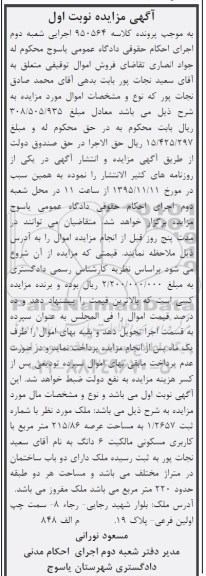 آگهی مزایده نوبت اول
به موجب پرونده کلاسه ۹۵۰۵۶۴ اجرایی شعبه دوم
اجرای احکام حقوقی دادگاه عمومی یاسوج محکوم له
جواد انصاری تقاضای فروش اموال توقیفی متعلق به
آقای سعید نجات پور بابت بدهی آقای محمد صادق
نجات پور که نوع و مشخصات اموال مورد مزایده به
شرح ذیل می باشد معادل مبلغ ۳۰۸/۵۰۵/۹۳۵
ریال بابت محکوم به در حق محکوم له و مبلغ
۱۵/۴۲۵/۲۹۷ ریال حق الاجرا در حق صندوق دولت
از طریق آگهی مزایده و انتشار آگهی در یکی از
روزنامه های کثیر الانتشار را نموده به همین سبب
در مورخ ۱۳۹۵/۱۱/۱۱ از ساعت ۱۱ در محل شعبه
دوم اجرای احکام حقوقی دادگاه عمومی یاسوج
مزایده برگزار خواهد شد. متقاضیان می توانند در
مدت پنج روز قبل از انجام مزایده اموال را به آدرس
ذیل ملاحظه نمایند. قیمتی که مزایده از آن شروع
می شود براساس نظریه کارشناس رسمی دادگستری
به مبلغ ۲/۲۰۰/۰۰۰/۰۰۰ ریال بوده و برنده مزایده
کسی است که بالاترین قیمت را پیشنهاد دهد و ده
درصد قیمت اموال را فی المجلس به عنوان سپرده
به قسمت اجرا تحویل دهد و بقیه بهای اموال را ظرف
یک ماه پس از انجام مزایده پرداخت نماید و در صورت
عدم پرداخت مابقی بهای اموال سپرده تودیعی پس از
کسر هزینه مزایده به نفع دولت ضبط خواهد شد. این
آگهی نوبت اول می باشد و نوع و مشخصات مال مورد
مزایده به شرح ذیل می باشد: ملک مورد نظر با شماره
ثبت ۱/۲۶۵۷ به مساحت عرصه ۲۱۵/۸۶ متر مربع با
کاربری مسکونی مالکیت ۶ دانگ به نام آقای سعید
نجات پور به ثبت رسیده ملک دارای دو باب ساختمان
در متراژ مختلف می باشد و مساحت هر دو طبقه
حدود ۲۲۰ متر مربع می باشد ملک مفروز می باشد.
آدرس ملک: بلوار شهید رجایی- رجاء ۸- سمت چپ
اولین فرعی- پلاک ۱۹. م الف ۸۴۸
مسعود نورانی
مدیر دفتر شعبه دوم اجرای احکام مدنی
دادگستری شهرستان یاسوج